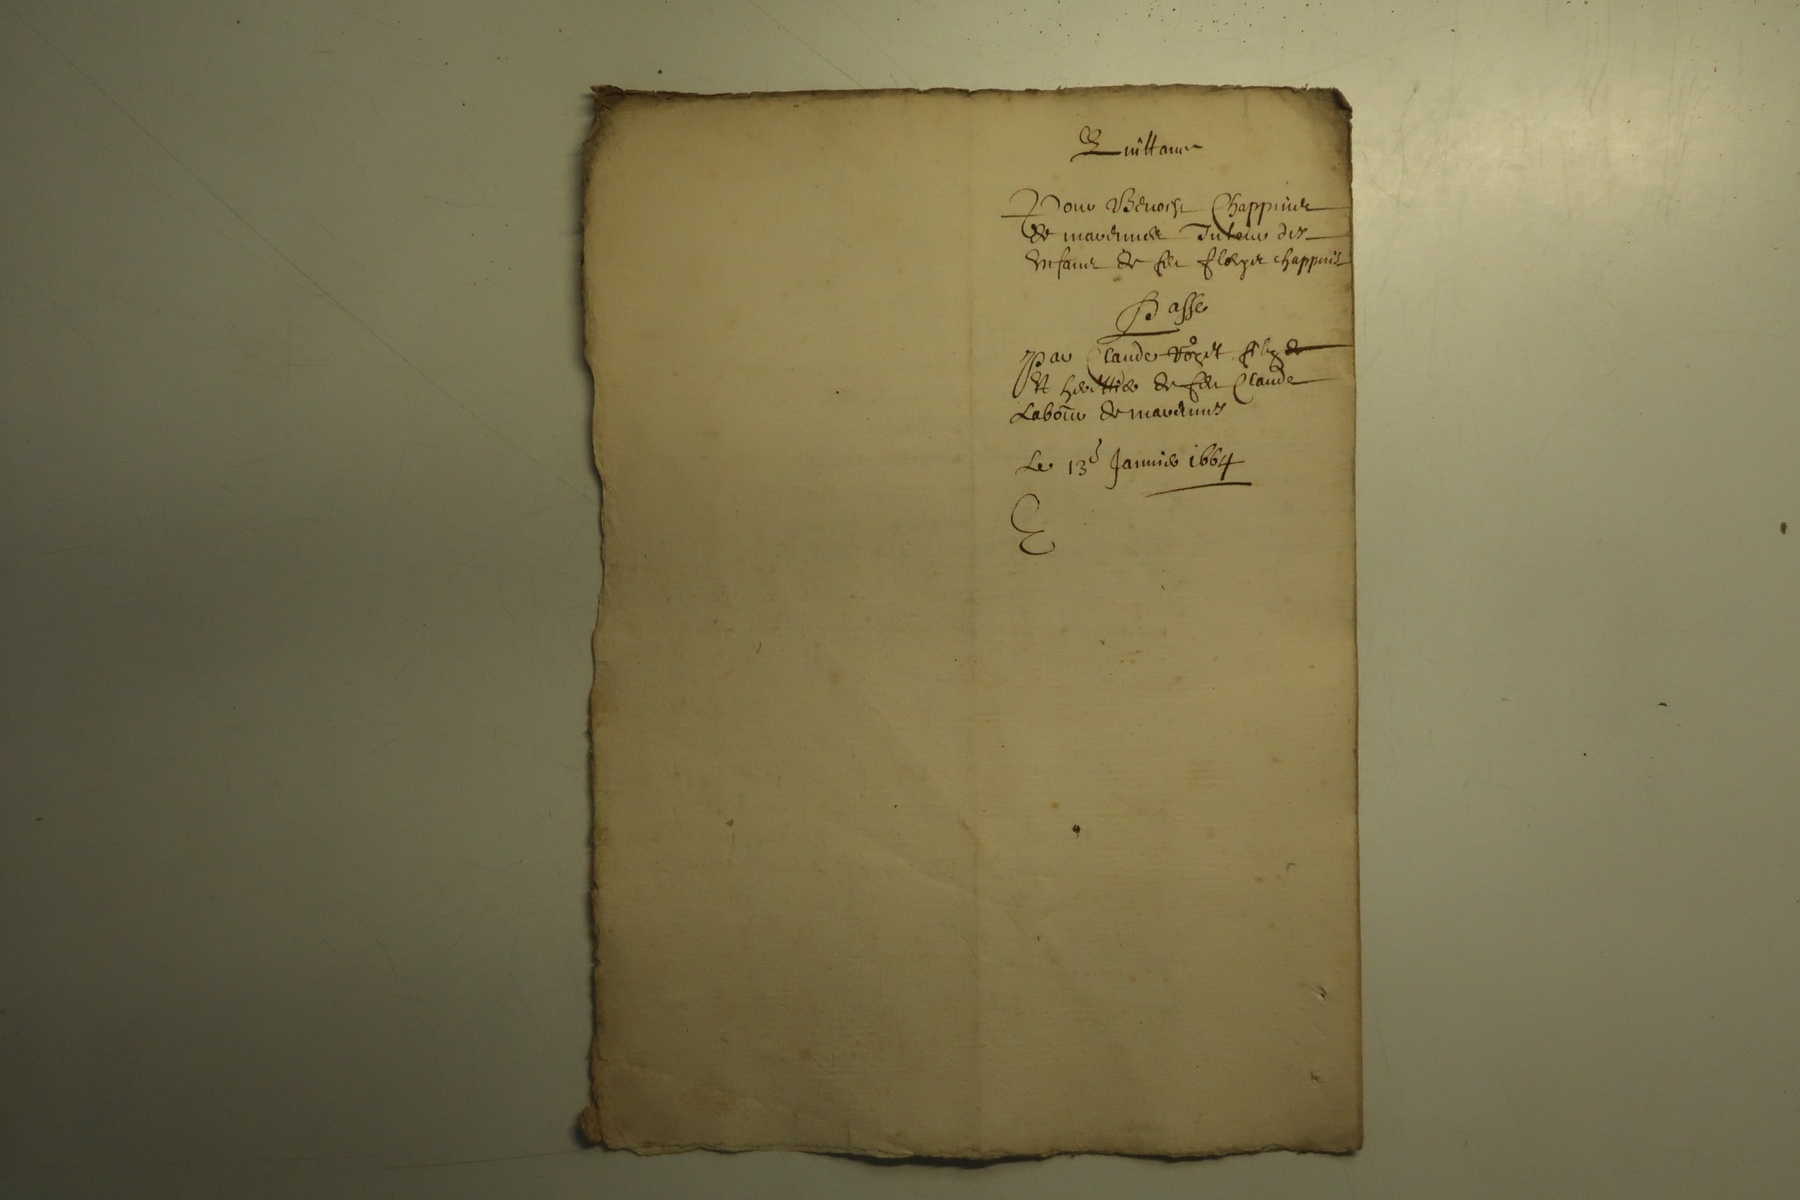 Quittance
Pour Benoist Chappuis
de mavernes Tuteur des
enfans de feu Chappuis
Passe
Par Claude filz
et herittier de feu Claude
Labour de mavernes
Le 13e Janvier 1664